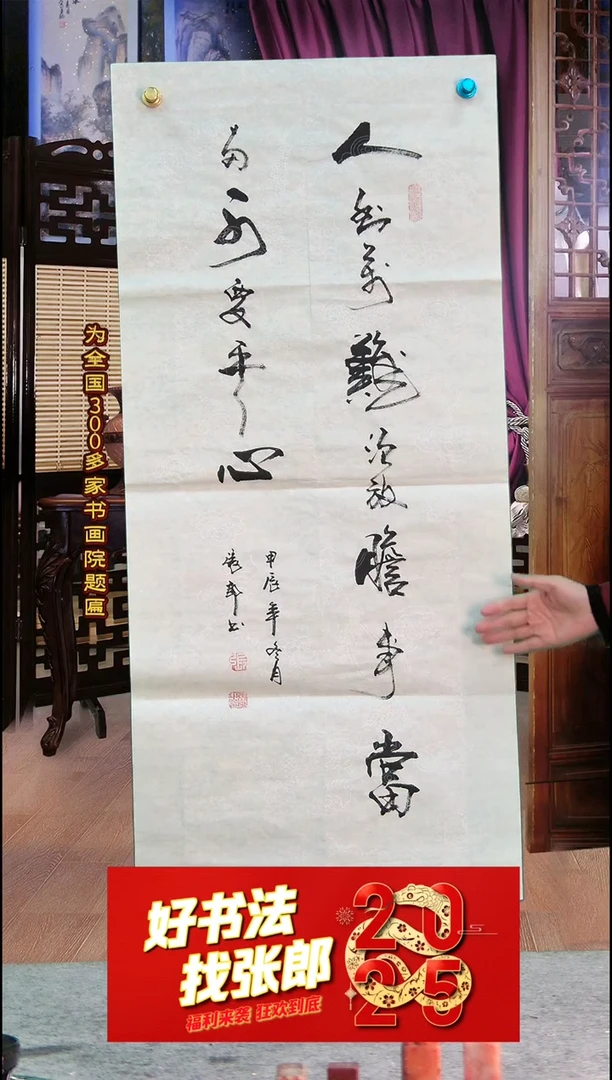 人到万難须放膽事當
两可要平心
甲辰年冬月
张郎书
为全国300多家书画院题匾
好书法
找张郎
2025
福利来袭 狂欢到底